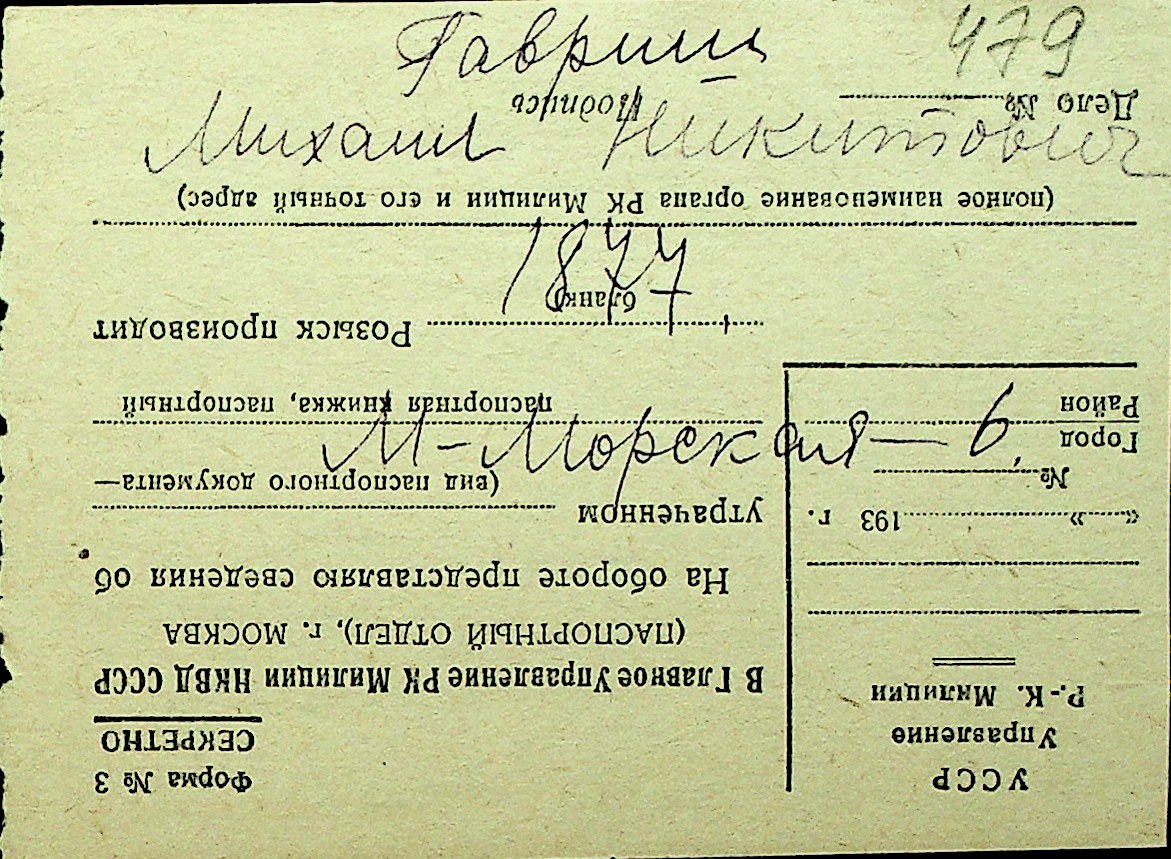 Гавриш
479
Михаил Никитович
1877
М-Морская — 6
УССР
Управление
Р.-К. Милиции
«      »      193   г.
№
Город
Район
Форма № 3
СЕКРЕТНО
В Главное Управление РК Милиции НКВД СССР
(ПАСПОРТНЫЙ ОТДЕЛ), г. МОСКВА
На обороте представляю сведения об
утраченном
(вид паспортного документа—
паспортная книжка, паспортный
бланк)
Розыск производит
(полное наименование органа РК Милиции и его точный адрес)
Дело №
Подпись